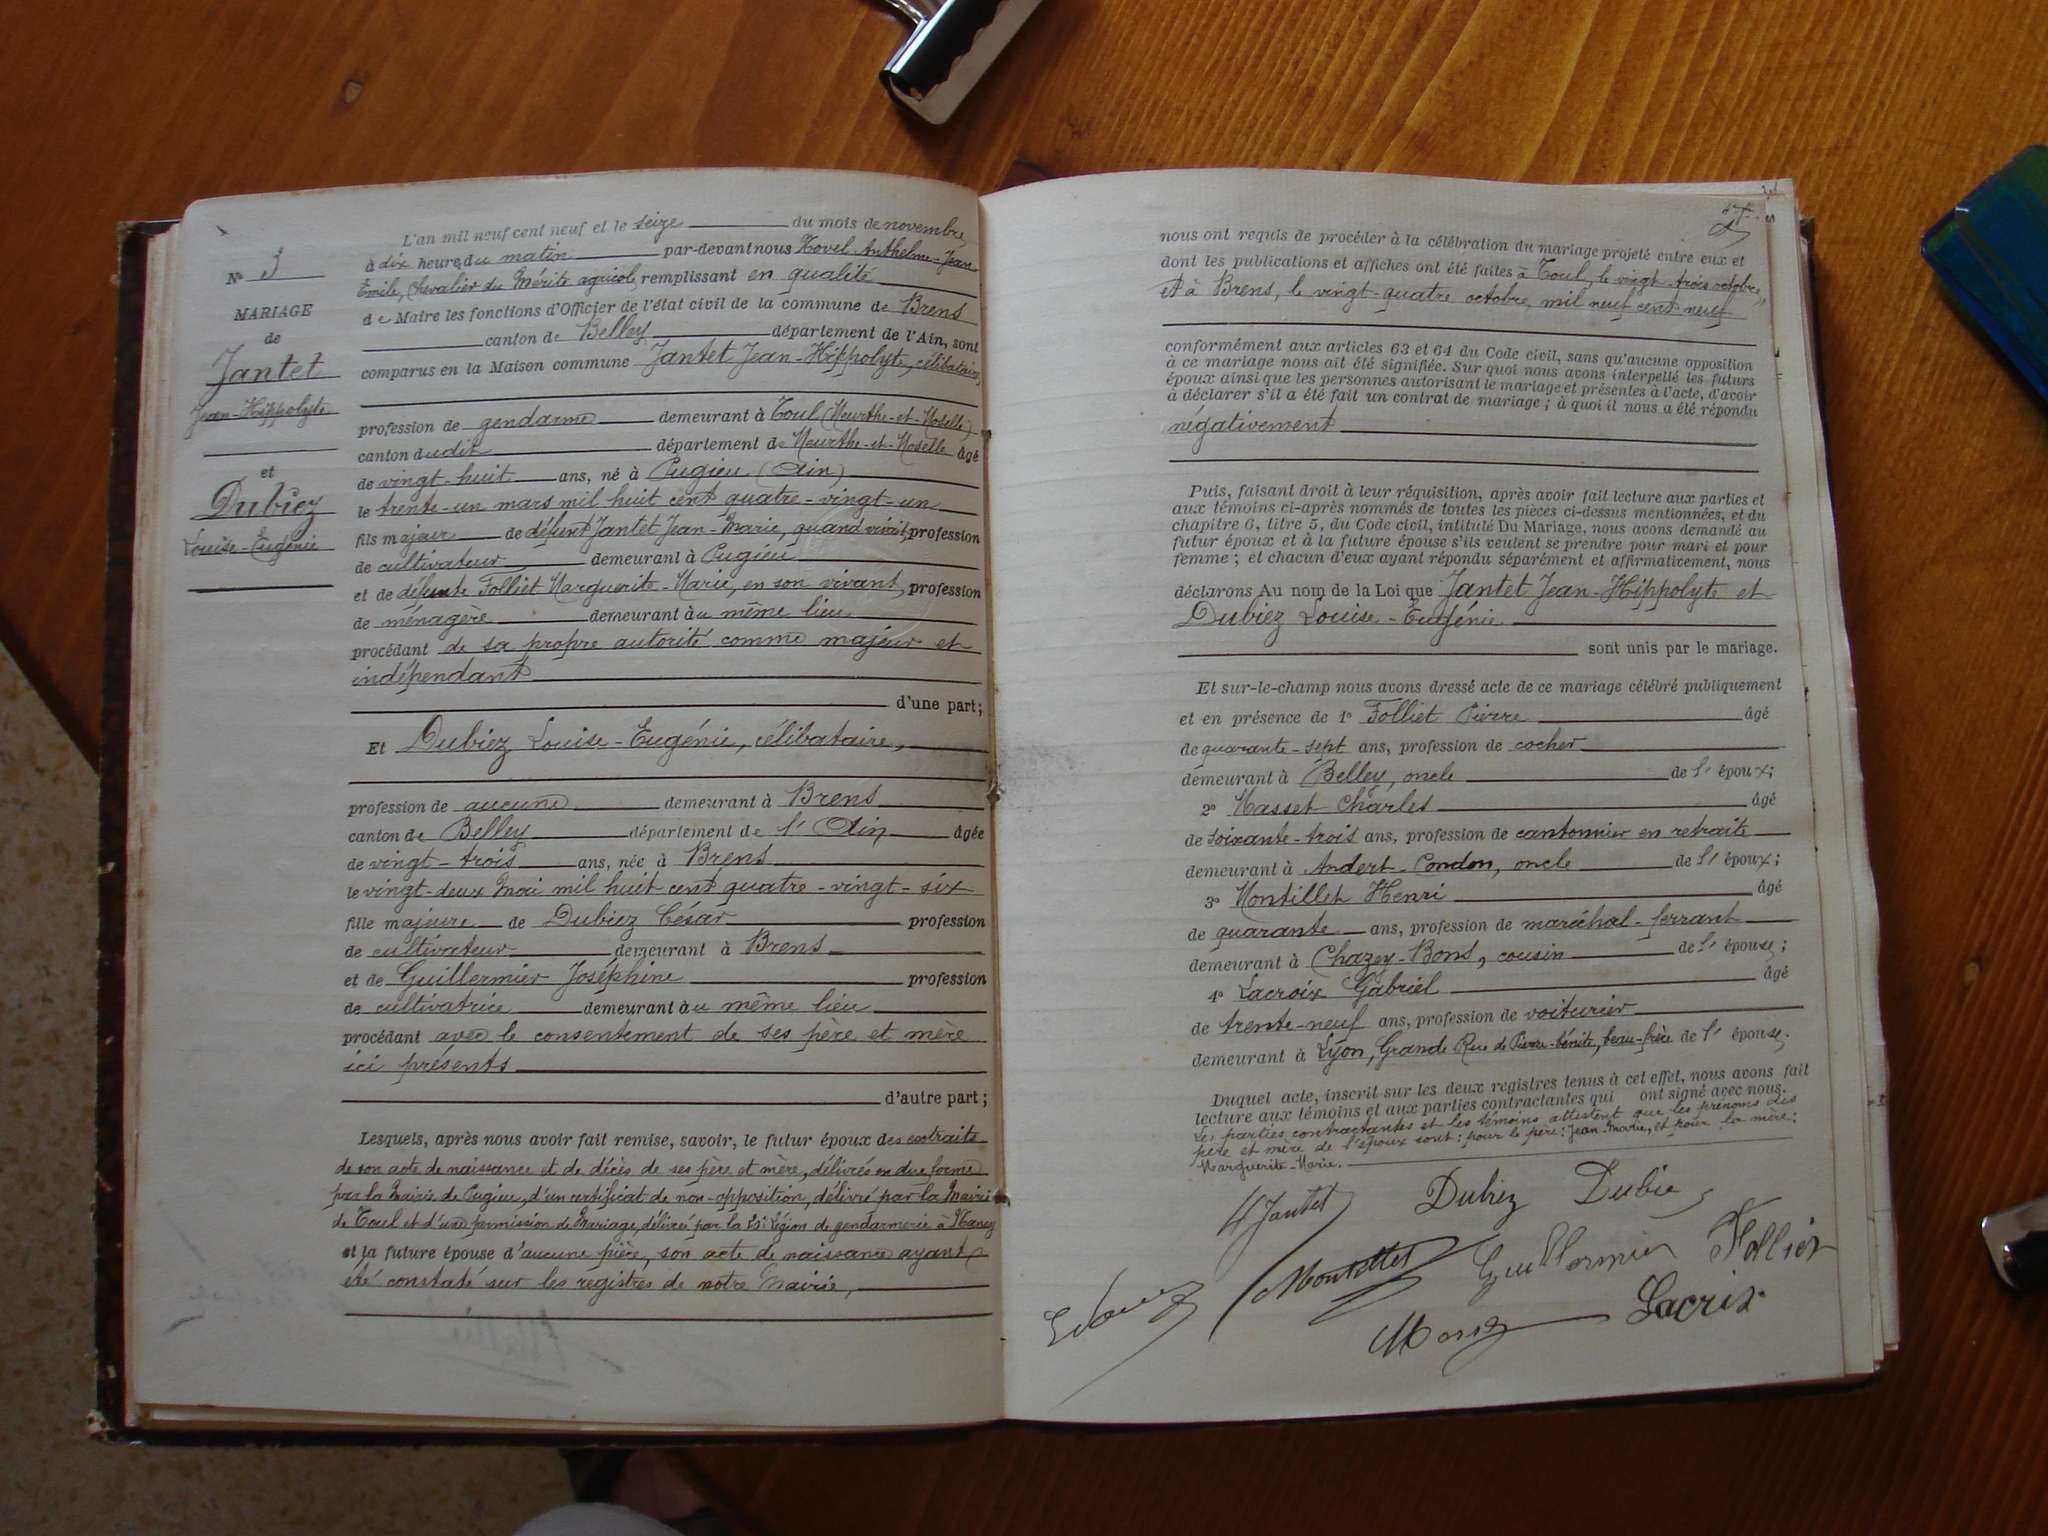 L'an mil neuf cent neuf et le seize du mois de novembre,
à dix heures du matin par-devant nous Hovel Anthelme-Jean-
Emile, Chevalier du Mérite agricole, remplissant en qualité
de Maire les fonctions d'Officier de l'état civil de la commune de Brens
canton de Belley département de l'Ain, sont
comparus en la Maison commune Jantet Jean-Hippolyte, célibataire,
profession de gendarme demeurant à Toul (Meurthe-et-Moselle)
canton dudit département de Meurthe-et-Moselle âgé
de vingt-huit ans, né à Pugieu (Ain)
le trente-un mars mil huit cent quatre-vingt-un
fils majeur de défunt Jantet Jean-Marie, quand vivait, profession
de cultivateur demeurant à Pugieu
et de défunte Folliet Marguerite-Marie, en son vivant, profession
de ménagère demeurant au même lieu
procédant de sa propre autorité comme majeur et
indépendant
d'une part;
Et Dubiez Louise-Eugénie, célibataire,
profession de aucune demeurant à Brens
canton de Belley département de l'Ain âgée
de vingt-trois ans, née à Brens
le vingt-deux Mai mil huit cent quatre-vingt-six
fille majeure de Dubiez César profession
de cultivateur demeurant à Brens
et de Guillermier Joséphine profession
de cultivatrice demeurant au même lieu
procédant avec le consentement de ses père et mère
ici présents
d'autre part;
Lesquels, après nous avoir fait remise, savoir, le futur époux des extraits
de son acte de naissance et de décès de ses père et mère, délivrés en due forme
par la Mairie de Pugieu, d'un certificat de non-opposition, délivré par la Mairie
de Toul et d'une permission de Mariage, délivrée par la Légion de gendarmerie à Nancy
et la future épouse d'aucune pièce, son acte de naissance ayant
été constaté sur les registres de notre Mairie,
N° 3
MARIAGE
de
Jantet
Jean-Hippolyte
et
Dubiez
Louise-Eugénie
nous ont requis de procéder à la célébration du mariage projeté entre eux et
dont les publications et affiches ont été faites à Toul, le vingt-trois octobre,
et à Brens, le vingt-quatre octobre, mil neuf cent neuf
conformément aux articles 63 et 64 du Code civil, sans qu'aucune opposition
à ce mariage nous ait été signifiée. Sur quoi nous avons interpellé les futurs
époux ainsi que les personnes autorisant le mariage et présentes à l'acte, d'avoir
à déclarer s'il a été fait un contrat de mariage; à quoi il nous a été répondu
négativement
Puis, faisant droit à leur réquisition, après avoir fait lecture aux parties et
aux témoins ci-après nommés de toutes les pièces ci-dessus mentionnées, et du
chapitre 6, titre 5, du Code civil, intitulé Du Mariage, nous avons demandé au
futur époux et à la future épouse s'ils veulent se prendre pour mari et pour
femme; et chacun d'eux ayant répondu séparément et affirmativement, nous
déclarons Au nom de la Loi que Jantet Jean-Hippolyte et
Dubiez Louise-Eugénie
sont unis par le mariage.
Et sur-le-champ nous avons dressé acte de ce mariage célébré publiquement
et en présence de 1° Folliet Pierre âgé
de quarante-sept ans, profession de cocher
demeurant à Belley, oncle de l'époux;
2° Masset Charles âgé
de soixante-trois ans, profession de cantonnier en retraite
demeurant à Andert-Condon, oncle de l'époux;
3° Montillet Henri âgé
de quarante ans, profession de maréchal-ferrant
demeurant à Chazey-Bons, cousin de l'épouse;
4° Lacroix Gabriel âgé
de trente-neuf ans, profession de voiturier
demeurant à Lyon, Grande Rue de Pierre-bénite, beau-frère de l'épouse.
Duquel acte, inscrit sur les deux registres tenus à cet effet, nous avons fait
lecture aux témoins et aux parties contractantes qui ont signé avec nous.
Les parties contractantes et les témoins attestent que les prénoms des
père et mère de l'époux sont: pour le père: Jean-Marie, et pour la mère:
Marguerite-Marie.
Jantet Dubiez Dubiez
Montillet Guillermier Folliet
Lacroix